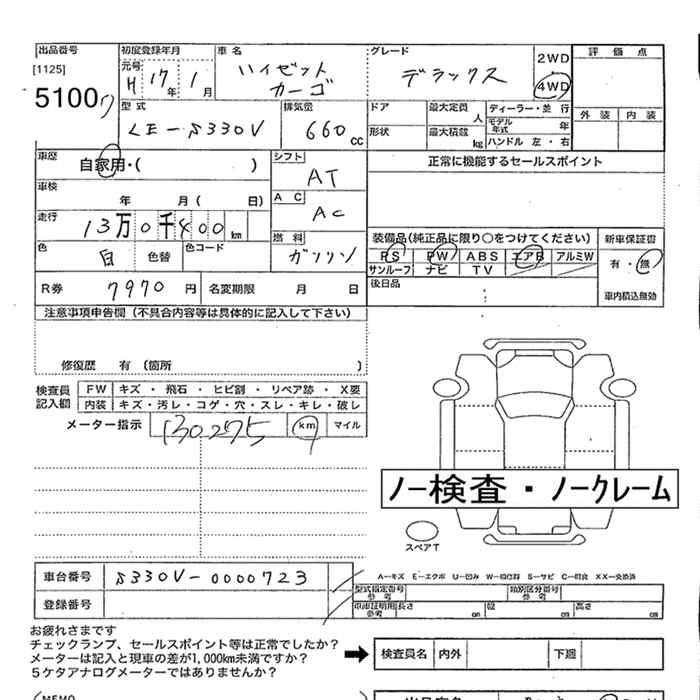 出品番号 初度登録年月 車名 グレード 2WD 評価点
[1125] 元号 H 17年 1月 ハイゼット カーゴ デラックス 4WD
5100
外装 内装
型式 排気量 ドア 最大定員 人 ディーラー・並行
LE-S330V 660cc 形状 最大積載 kg モデル年式 年
ハンドル 左・右
車歴 自家用・( ) シフト 正常に機能するセールスポイント
AT
車検 年 月( 日) AC
AC
走行 13万0千400km
燃料 装備品(純正品に限り○をつけてください) 新車保証書
色 白 色替 色コード ガソリン PS PW ABS エアB アルミW 有・無
サンルーフ ナビ TV
R券 7970円 名変期限 月 日 後日品 車内積込無効
注意事項申告欄(不具合内容等は具体的に記入して下さい)
修復歴 有(箇所 )
検査員 FW キズ・飛石・ヒビ割・リペア跡・X要
記入欄 内装 キズ・汚レ・コゲ・穴・スレ・キレ・破レ
メーター指示 130275 km マイル
ノー検査・ノークレーム
スペアT
車台番号 S330V-0000723 A-キズ E-エクボ U-凹み S-サビ XX-交換済
登録番号 型式指定番号 参考 類別区分番号 参考
車庫証明用 参考 長さ cm 幅 cm 高さ cm
お疲れさまです
チェックランプ、セールスポイント等は正常でしたか?
メーターは記入と現車の差が1,000km未満ですか? 検査員名 内外 下廻
5ケタアナログメーターではありませんか?
(MEMO